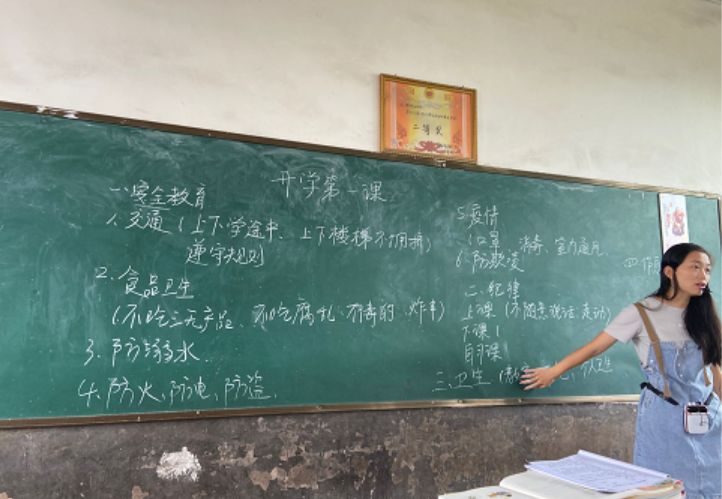 二等奖
开学第一课
一、安全教育
1、交通(上下学途中、上下楼梯不拥挤)
遵守规则
2、食品卫生
(不吃三无产品、不吃腐乱、有毒的、炸串)
3、防溺水
4、防火、防电、防盗、
5.疫情
(口罩、消毒、室内通风
6、防欺凌
二、纪律
上课(不随意说话、走动)
下课
自习课
三、卫生
四、作